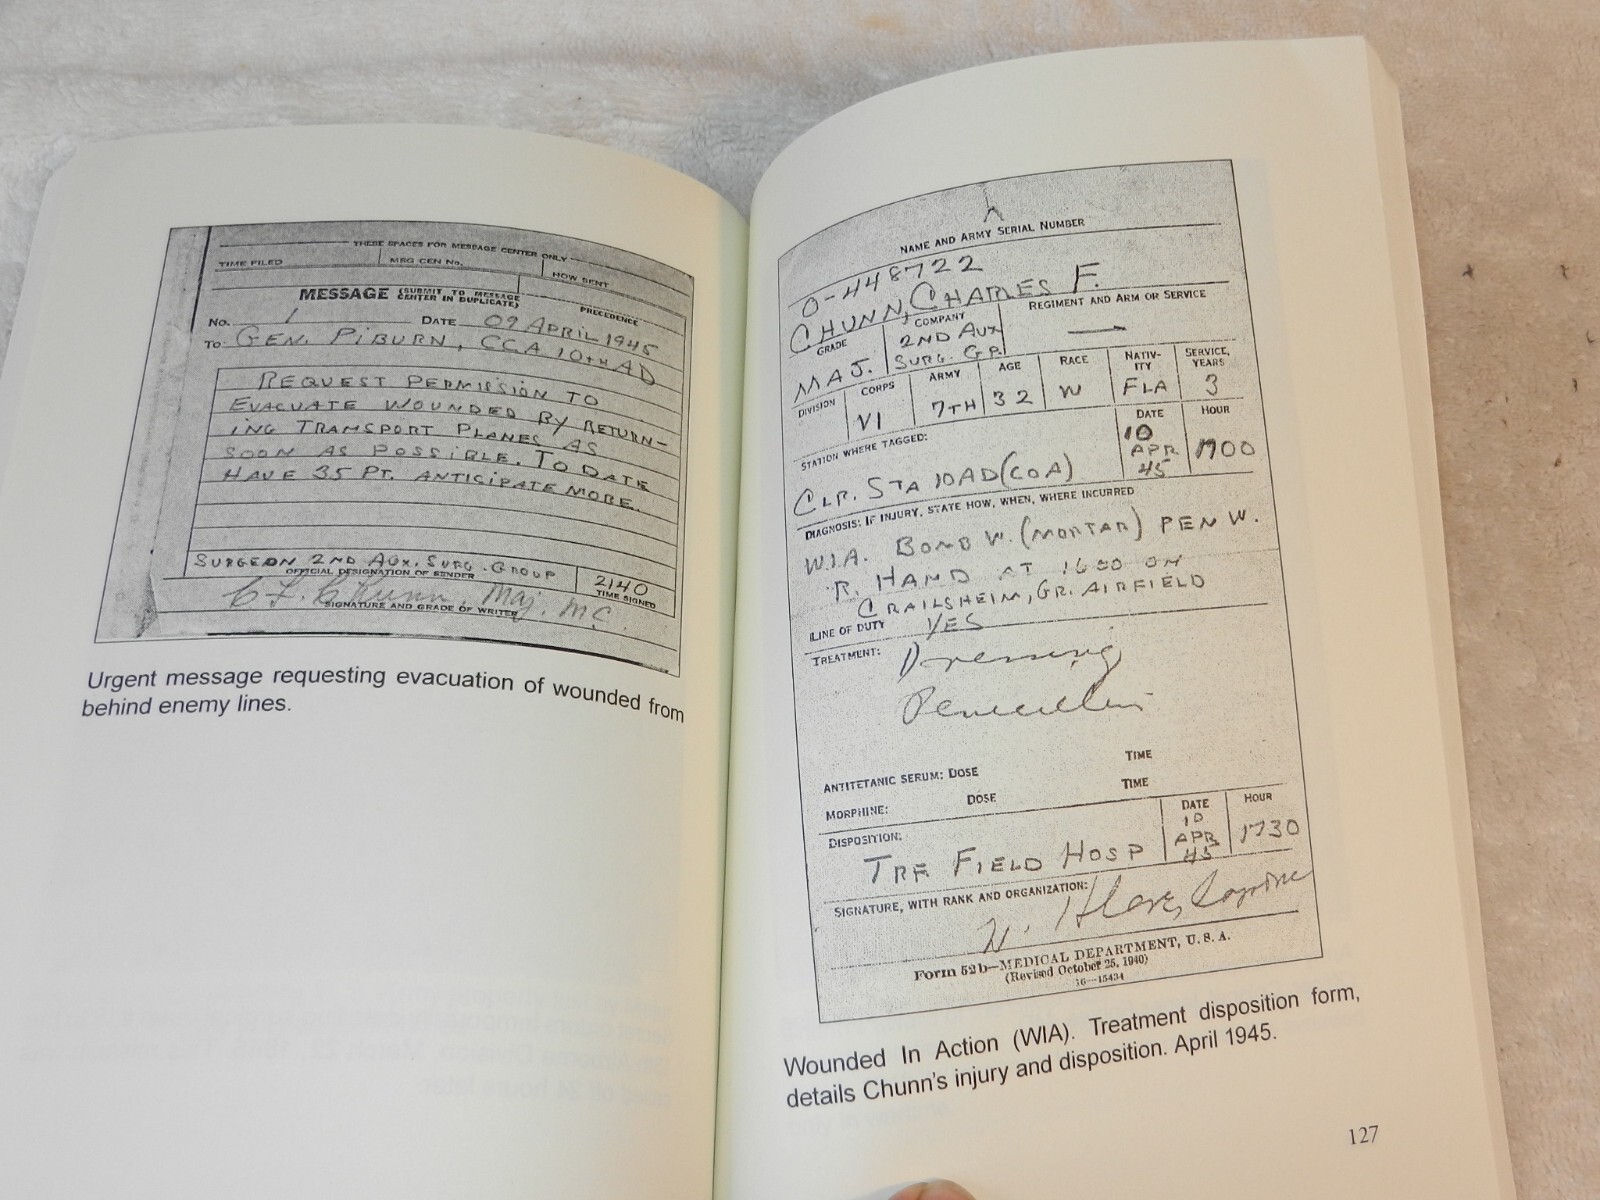 THESE SPACES FOR MESSAGE CENTER ONLY
TIME FILED MSG CEN No. HOW SENT
MESSAGE (SUBMIT TO MESSAGE CENTER IN DUPLICATE) PRECEDENCE
No. 1 DATE 09 APRIL 1945
To GEN. PIBURN, CCA 10TH AD
REQUEST PERMISSION TO
EVACUATE WOUNDED BY RETURN-
ING TRANSPORT PLANES AS
SOON AS POSSIBLE. TO DATE
HAVE 35 PT. ANTICIPATE MORE.
SURGEON 2ND AUX. SURG. GROUP 2140
OFFICIAL DESIGNATION OF SENDER TIME SIGNED
C F Chunn, Maj. MC.
SIGNATURE AND GRADE OF WRITER
Urgent message requesting evacuation of wounded from
behind enemy lines.
NAME AND ARMY SERIAL NUMBER
0-448722
CHUNN, CHARLES F.
GRADE COMPANY REGIMENT AND ARM OR SERVICE
MAJ. 2ND AUX SURG. GP. —
DIVISION CORPS ARMY AGE RACE NATIV-ITY SERVICE, YEARS
VI 7TH 32 W FLA 3
STATION WHERE TAGGED: DATE HOUR
CLR. STA 10AD (COA) 10 APR 45 1700
DIAGNOSIS: IF INJURY, STATE HOW, WHEN, WHERE INCURRED
W.I.A. BOMB W. (MORTAR) PEN W.
R. HAND AT 1600 ON
CRAILSHEIM, GR. AIRFIELD
LINE OF DUTY YES
TREATMENT: Dressing
Penicillin
ANTITETANIC SERUM: DOSE TIME
MORPHINE: DOSE TIME
DISPOSITION: DATE HOUR
TRF FIELD HOSP 10 APR 45 1730
SIGNATURE, WITH RANK AND ORGANIZATION:
Form 52b—MEDICAL DEPARTMENT, U. S. A.
(Revised October 25, 1940)
16—15434
Wounded In Action (WIA). Treatment disposition form,
details Chunn's injury and disposition. April 1945.
127